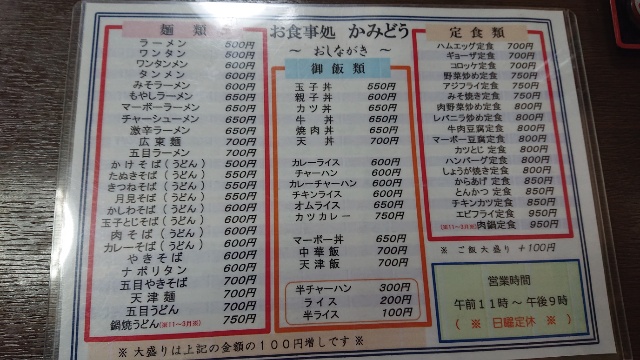 お食事処 かみどう
～ おしながき ～
麺類
ラーメン 500円
ワンタン 500円
ワンタンメン 600円
タンメン 600円
みそラーメン 600円
もやしラーメン 650円
マーボーラーメン 650円
チャーシューメン 650円
激辛ラーメン 650円
広東麺 700円
五目ラーメン 700円
かけそば(うどん) 500円
たぬきそば(うどん) 550円
きつねそば(うどん) 550円
月見そば(うどん) 550円
かしわそば(うどん) 600円
玉子とじそば(うどん) 600円
肉そば(うどん) 600円
カレーそば(うどん) 600円
やきそば 600円
ナポリタン 600円
五目やきそば 700円
天津麺 700円
五目うどん 700円
鍋焼うどん(※11～3月※) 750円
御飯類
玉子丼 550円
親子丼 600円
カツ丼 650円
牛丼 650円
焼肉丼 650円
天丼 700円
カレーライス 600円
チャーハン 600円
カレーチャーハン 600円
チキンライス 600円
オムライス 650円
カツカレー 750円
マーボー丼 650円
中華飯 700円
天津飯 700円
半チャーハン 300円
ライス 200円
半ライス 100円
定食類
ハムエッグ定食 700円
ギョーザ定食 700円
コロッケ定食 700円
野菜炒め定食 750円
アジフライ定食 750円
みそ焼き定食 750円
肉野菜炒め定食 800円
レバニラ炒め定食 800円
牛肉豆腐定食 800円
マーボー豆腐定食 800円
カツとじ定食 800円
ハンバーグ定食 800円
しょうが焼き定食 800円
からあげ定食 850円
とんかつ定食 850円
チキンカツ定食 850円
エビフライ定食 950円
(※11～3月※)肉鍋定食 950円
※ ご飯大盛り +100円
営業時間
午前11時～午後9時
( ※ 日曜定休 ※ )
※ 大盛りは上記の金額の100円増しです ※